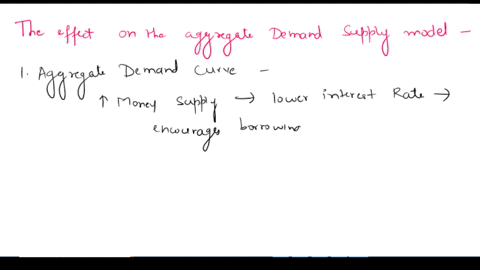 The effect on the aggregate Demand Supply model -
1. Aggregate Demand Curve -
↑ Money Supply → lower interest Rate →
encourages borrowing